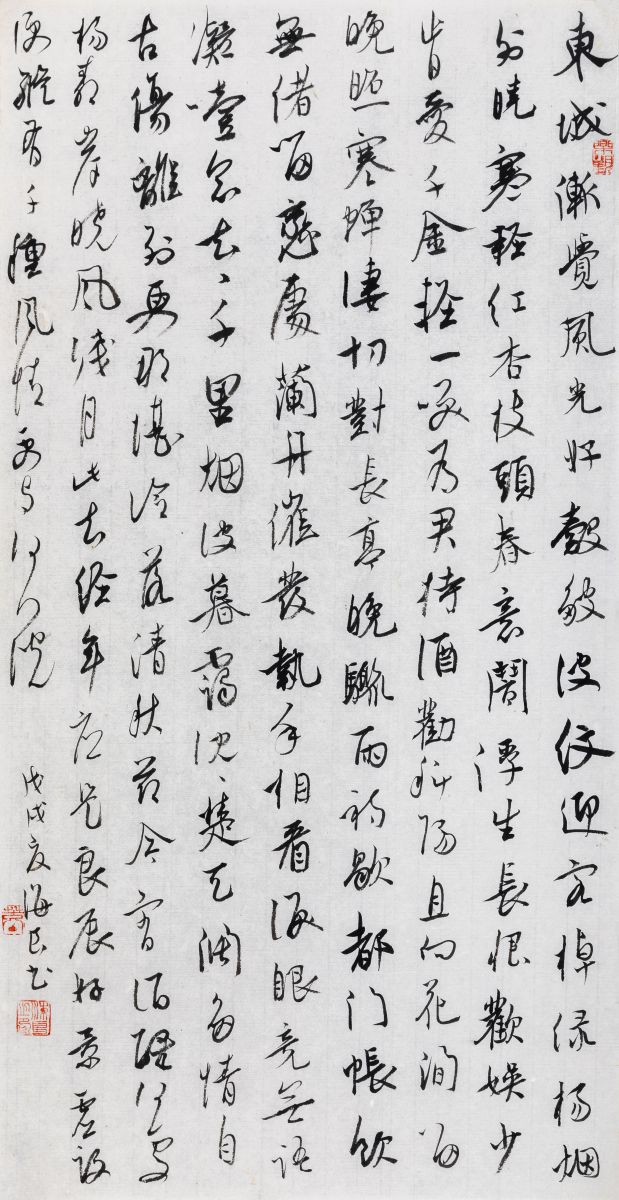 東城漸覺風光好縠皺波紋迎客棹綠楊烟
外曉寒輕紅杏枝頭春意鬧浮生長恨歡娛少
肯愛千金輕一笑為君持酒勸斜陽且向花間留
晚照寒蟬淒切對長亭晚驟雨初歇都门帳飲
無緒留戀處蘭舟催發執手相看淚眼竟無語
凝噎念去、千里烟波暮靄沈、楚天闊多情自
古傷離別更那堪冷落清秋節今宵酒醒何處
楊柳岸曉風殘月此去經年应是良辰好景虛設
便縱有千種風情更与何人說
戊戌夏海书